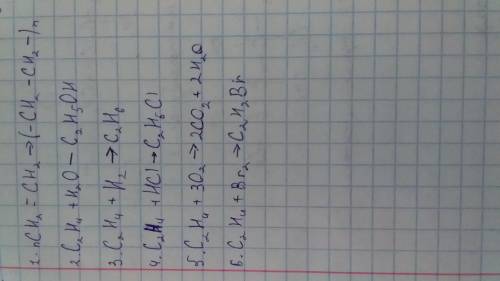 1. nCH₂ = CH₂ → (-CH₂ - CH₂ -)n
2. C₂H₄ + H₂O – C₂H₅OH
3. C₂H₄ + H₂ → C₂H₆
4. C₂H₄ + HCl → C₂H₆Cl
5. C₂H₄ + 3O₂ → 2CO₂ + 2H₂O
6. C₂H₄ + Br₂ → C₂H₂Br